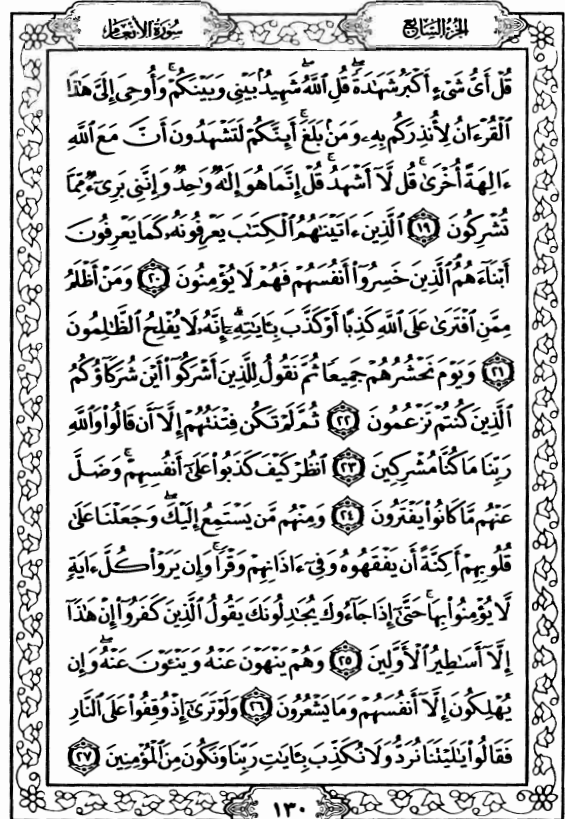 سُورَةُ الأَنْعَامِ
الجُزْءُ السَّابِعُ
قُلْ أَيُّ شَيْءٍ أَكْبَرُ شَهَٰدَةًۖ قُلِ ٱللَّهُۖ شَهِيدُۢ بَيْنِي وَبَيْنَكُمْۚ وَأُوحِيَ إِلَيَّ هَٰذَا
ٱلْقُرْءَانُ لِأُنذِرَكُم بِهِۦ وَمَنۢ بَلَغَۚ أَئِنَّكُمْ لَتَشْهَدُونَ أَنَّ مَعَ ٱللَّهِ
ءَالِهَةً أُخْرَىٰۚ قُل لَّآ أَشْهَدُۚ قُلْ إِنَّمَا هُوَ إِلَٰهٌ وَٰحِدٌ وَإِنَّنِي بَرِيٓءٌ مِّمَّا
تُشْرِكُونَ ١٩ ٱلَّذِينَ ءَاتَيْنَٰهُمُ ٱلْكِتَٰبَ يَعْرِفُونَهُۥ كَمَا يَعْرِفُونَ
أَبْنَآءَهُمُ ٱلَّذِينَ خَسِرُوٓا۟ أَنفُسَهُمْ فَهُمْ لَا يُؤْمِنُونَ ٢٠ وَمَنْ أَظْلَمُ
مِمَّنِ ٱفْتَرَىٰ عَلَى ٱللَّهِ كَذِبًا أَوْ كَذَّبَ بِـَٔايَٰتِهِۦٓۗ إِنَّهُۥ لَا يُفْلِحُ ٱلظَّٰلِمُونَ
٢١ وَيَوْمَ نَحْشُرُهُمْ جَمِيعًا ثُمَّ نَقُولُ لِلَّذِينَ أَشْرَكُوٓا۟ أَيْنَ شُرَكَآؤُكُمُ
ٱلَّذِينَ كُنتُمْ تَزْعُمُونَ ٢٢ ثُمَّ لَمْ تَكُن فِتْنَتُهُمْ إِلَّآ أَن قَالُوا۟ وَٱللَّهِ
رَبِّنَا مَا كُنَّا مُشْرِكِينَ ٢٣ ٱنظُرْ كَيْفَ كَذَبُوا۟ عَلَىٰٓ أَنفُسِهِمْۚ وَضَلَّ
عَنْهُم مَّا كَانُوا۟ يَفْتَرُونَ ٢٤ وَمِنْهُم مَّن يَسْتَمِعُ إِلَيْكَۖ وَجَعَلْنَا عَلَىٰ
قُلُوبِهِمْ أَكِنَّةً أَن يَفْقَهُوهُ وَفِيٓ ءَاذَانِهِمْ وَقْرًاۚ وَإِن يَرَوْا۟ كُلَّ ءَايَةٍ
لَّا يُؤْمِنُوا۟ بِهَاۚ حَتَّىٰٓ إِذَا جَآءُوكَ يُجَٰدِلُونَكَ يَقُولُ ٱلَّذِينَ كَفَرُوٓا۟ إِنْ هَٰذَآ
إِلَّآ أَسَٰطِيرُ ٱلْأَوَّلِينَ ٢٥ وَهُمْ يَنْهَوْنَ عَنْهُ وَيَنْـَٔوْنَ عَنْهُۖ وَإِن
يُهْلِكُونَ إِلَّآ أَنفُسَهُمْ وَمَا يَشْعُرُونَ ٢٦ وَلَوْ تَرَىٰٓ إِذْ وُقِفُوا۟ عَلَى ٱلنَّارِ
فَقَالُوا۟ يَٰلَيْتَنَا نُرَدُّ وَلَا نُكَذِّبَ بِـَٔايَٰتِ رَبِّنَا وَنَكُونَ مِنَ ٱلْمُؤْمِنِينَ ٢٧
١٣٠